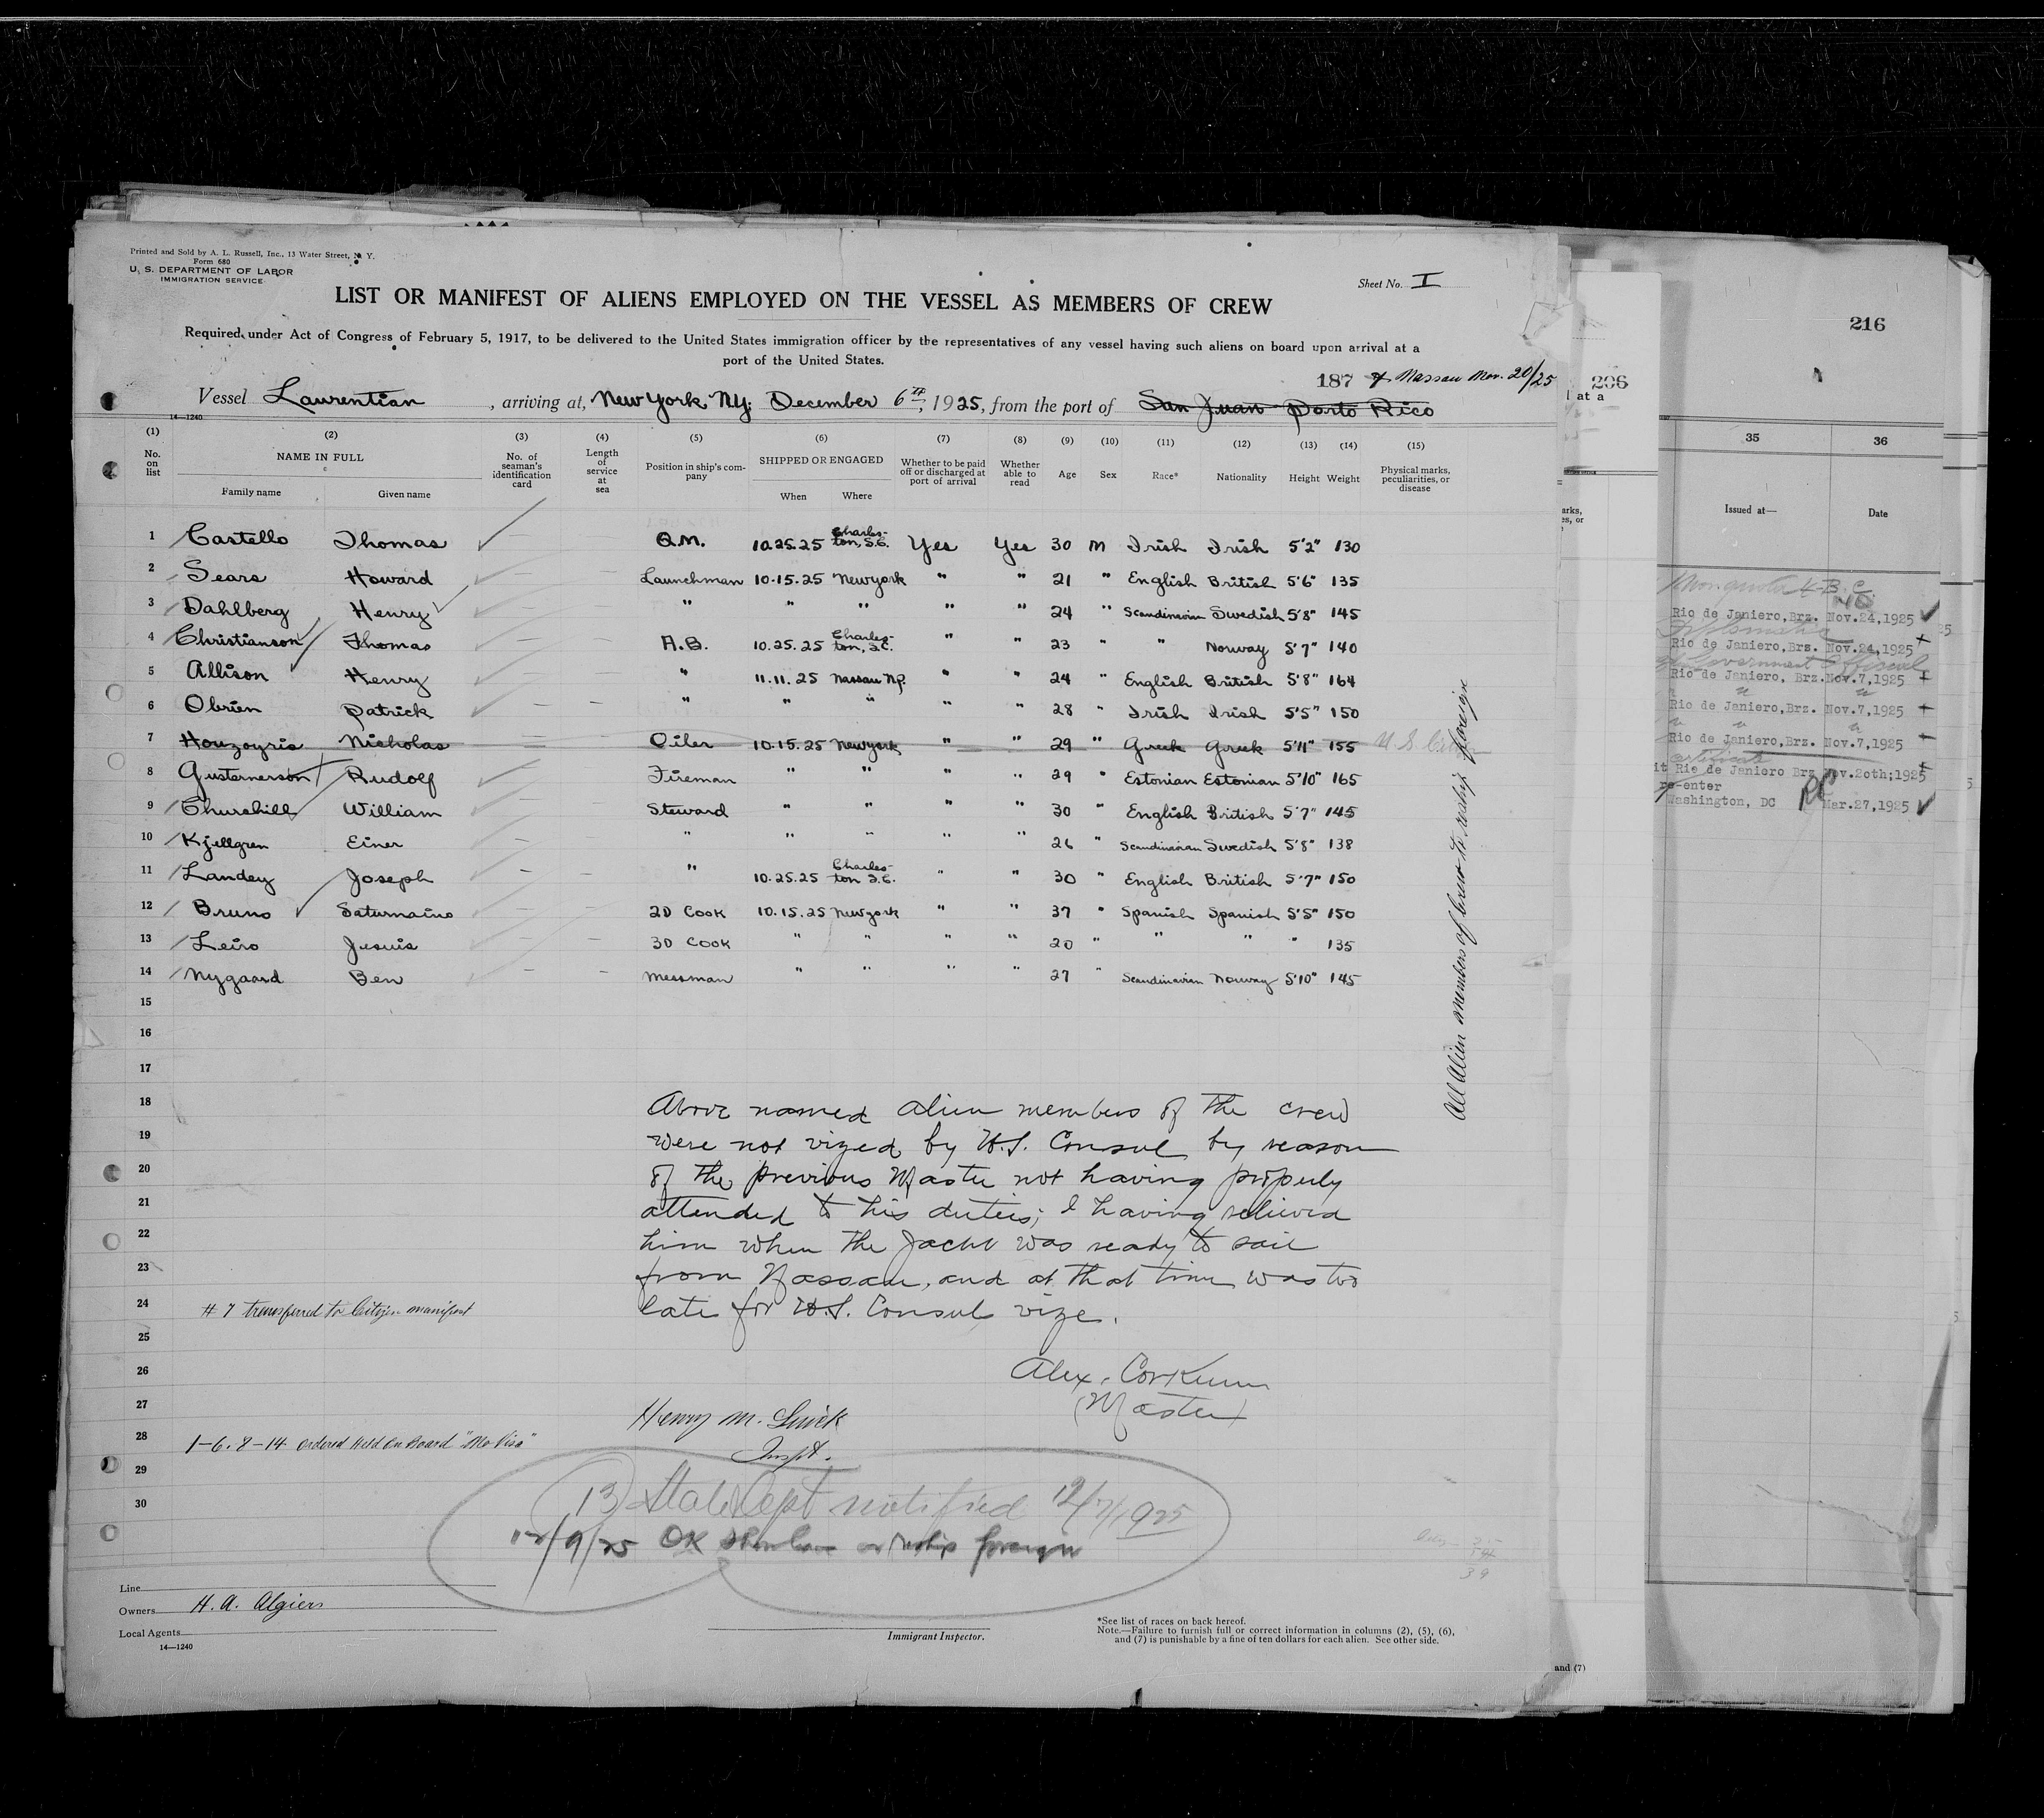 Printed and Sold by A. L. Russell, Inc., 13 Water Street, N. Y.
Form 680
U. S. DEPARTMENT OF LABOR
IMMIGRATION SERVICE
Sheet No. I
LIST OR MANIFEST OF ALIENS EMPLOYED ON THE VESSEL AS MEMBERS OF CREW
Required under Act of Congress of February 5, 1917, to be delivered to the United States immigration officer by the representatives of any vessel having such aliens on board upon arrival at a
port of the United States.
187 & Nassau Nov. 20/25
Vessel Laurentian, arriving at, New York, N.Y. December 6th, 1925, from the port of San Juan Porto Rico
14—1240
(1) (2) (3) (4) (5) (6) (7) (8) (9) (10) (11) (12) (13) (14) (15)
No. on list NAME IN FULL Family name Given name No. of seaman's identification card Length of service at sea Position in ship's company SHIPPED OR ENGAGED When Where Whether to be paid off or discharged at port of arrival Whether able to read Age Sex Race* Nationality Height Weight Physical marks, peculiarities, or disease
1 Castello Thomas — — Q.M. 10.25.25 Charleston, S.C. Yes Yes 30 M Irish Irish 5'2" 130
2 Sears Howard — — Launchman 10.15.25 New York " " 21 " English British 5'6" 135
3 Dahlberg Henry — — " " " " " 24 " Scandinavian Swedish 5'8" 145
4 Christianson Thomas — — A.B. 10.25.25 Charleston, S.C. " " 23 " " Norway 5'7" 140
5 Allison Henry — — " 11.11.25 Nassau N.P. " " 24 " English British 5'8" 164
6 Obrien Patrick — — " " " " " 28 " Irish Irish 5'5" 150
7 Houzoyris Nicholas — — Oiler 10.15.25 New York " " 29 " Greek Greek 5'11" 155 U.S. Citizen
8 Gusternerson Rudolf — — Fireman " " " " 29 " Estonian Estonian 5'10" 165
9 Churchill William — — Steward " " " " 30 " English British 5'7" 145
10 Kjellgren Einer — — " " " " " 26 " Scandinavian Swedish 5'8" 138
11 Landey Joseph — — " 10.25.25 Charleston S.C. " " 30 " English British 5'7" 150
12 Bruno Saturnaino — — 2D Cook 10.15.25 New York " " 37 " Spanish Spanish 5'5" 150
13 Leiro Jesuis — — 3D Cook " " " " 20 " " " " 135
14 Nygaard Ben — — Messman " " " " 27 " Scandinavian Norway 5'10" 145
15
16
17
18 Above named alien members of the crew
19 were not vized by U.S. Consul by reason
20 of the previous Master not having properly
21 attended to his duties; I having relieved
22 him when the Jacht was ready to sail
23 from Nassau, and at that time was too
24 late for U.S. Consul vize.
# 7 transferred to Citizen manifest
25
26 Alex. Corkum
27 (Master)
Henry M.
28 1-6, 8-14 ordered Held On Board "No Visa"
Inspt.
29
30 13 State Dept notified 12/7/1925
12/9/25 OK or reship foreign
All Alien members of crew to reship foreign
Line
Owners H. A. Algiers
Local Agents
14—1240
Immigrant Inspector.
*See list of races on back hereof.
Note.—Failure to furnish full or correct information in columns (2), (5), (6),
and (7) is punishable by a fine of ten dollars for each alien. See other side.
206
at a
arks,
es, or
and (7)
216
35 36
Issued at— Date
Rio de Janiero,Brz. Nov.24,1925
Rio de Janiero,Brz. Nov.24,1925
Government Official
Rio de Janiero, Brz. Nov.7,1925
Rio de Janiero,Brz. Nov.7,1925
Rio de Janiero,Brz. Nov.7,1925
it Rio de Janiero Brz Nov.20th;1925
re-enter
Washington, DC Mar.27,1925